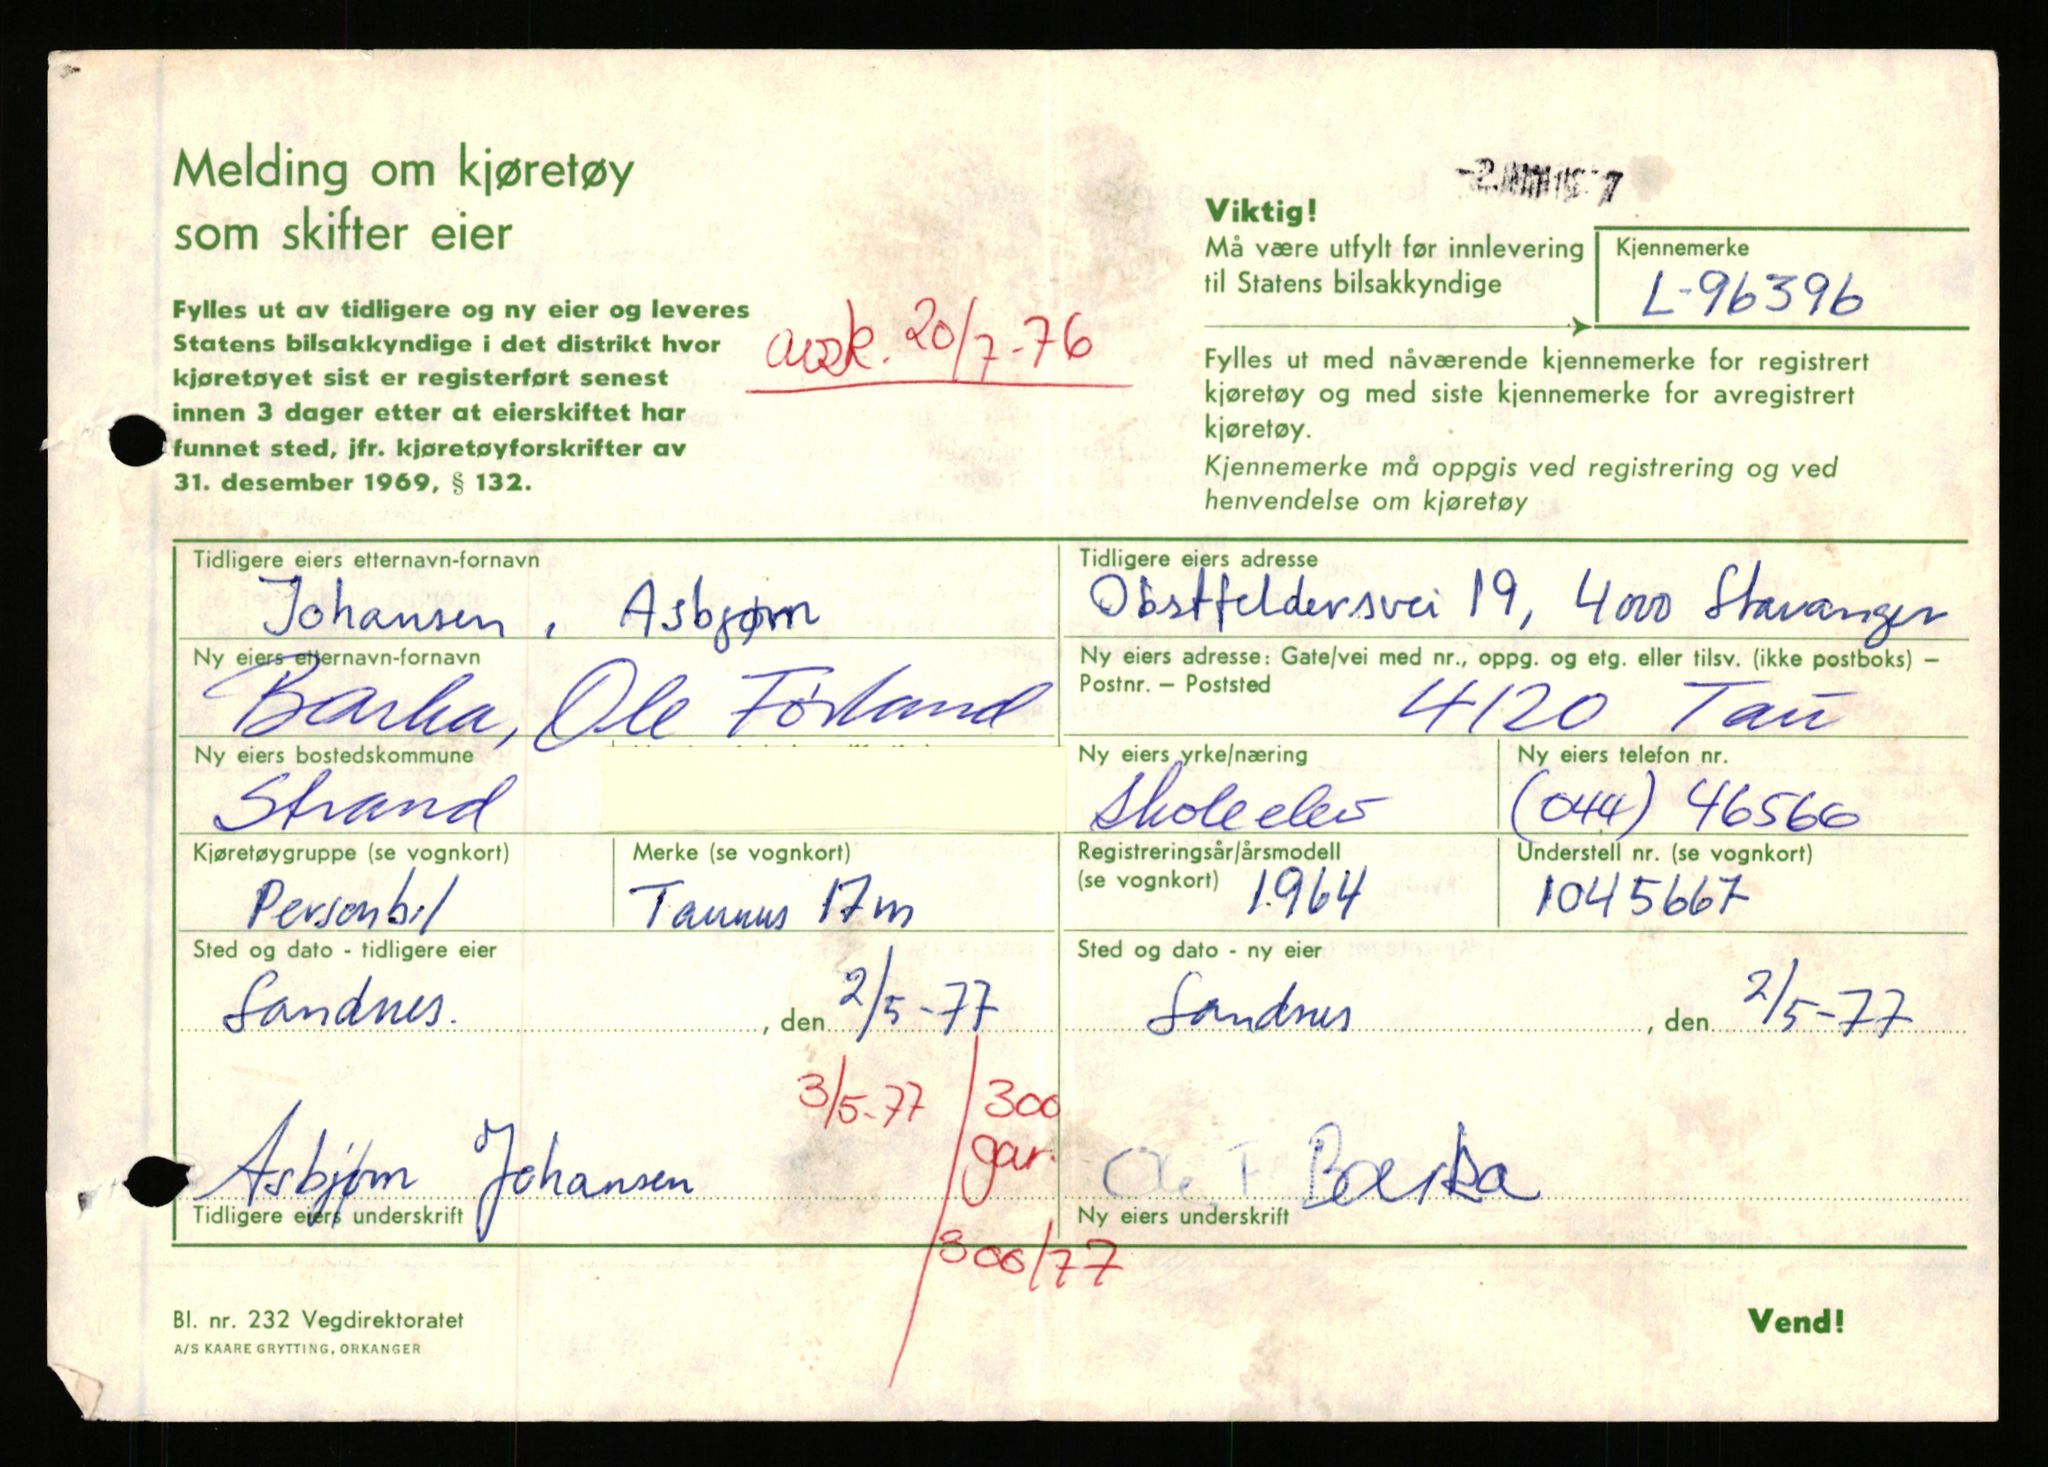 Melding om kjøretøy
som skifter eier
Fylles ut av tidligere og ny eier og leveres
Statens bilsakkyndige i det distrikt hvor
kjøretøyet sist er registerført senest
innen 3 dager etter at eierskiftet har
funnet sted, jfr. kjøretøyforskrifter av
31. desember 1969, § 132.
avsk. 20/7-76
Viktig!
Må være utfylt før innlevering
til Statens bilsakkyndige
Kjennemerke
L-96396
Fylles ut med nåværende kjennemerke for registrert
kjøretøy og med siste kjennemerke for avregistrert
kjøretøy.
Kjennemerke må oppgis ved registrering og ved
henvendelse om kjøretøy
Tidligere eiers etternavn-fornavn
Johansen, Asbjørn
Tidligere eiers adresse
Obstfeldersvei 19, 4000 Stavanger
Ny eiers etternavn-fornavn
Barka, Ole Førland
Ny eiers adresse: Gate/vei med nr., oppg. og etg. eller tilsv. (ikke postboks) –
Postnr. – Poststed
4120 Tau
Ny eiers bostedskommune
Strand
Ny eiers yrke/næring
Skoleelev
Ny eiers telefon nr.
(044) 46566
Kjøretøygruppe (se vognkort)
Personbil
Merke (se vognkort)
Taunus 17m
Registreringsår/årsmodell
(se vognkort) 1964
Understell nr. (se vognkort)
1045667
Sted og dato - tidligere eier
Sandnes. , den 2/5-77
Sted og dato - ny eier
Sandnes , den 2/5-77
3/5-77 / 300
gar.
Asbjørn Johansen
Tidligere eiers underskrift
Ole F Barka
Ny eiers underskrift
300/77
Bl. nr. 232 Vegdirektoratet
A/S KAARE GRYTTING, ORKANGER
Vend!